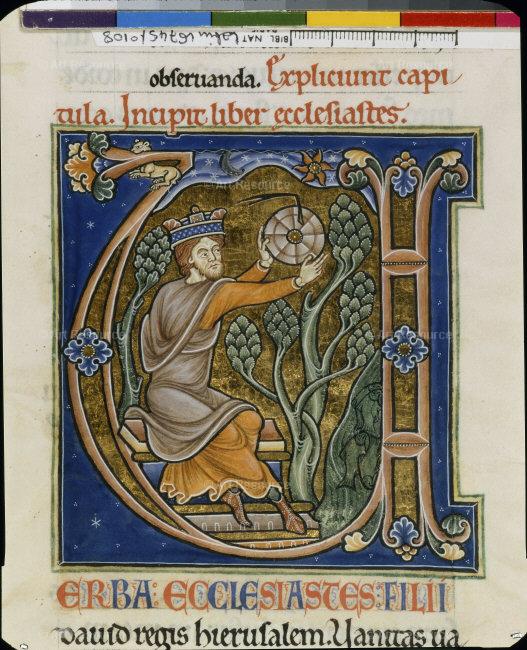 BIBL NAT Latin 16745 / 0108
PARIS
obseruanda. Expliciunt capi
tula. Incipit liber ecclesiastes.
Art Resource
V
ERBA: ECCLESIASTES: FILII
dauid regis hierusalem. Vanitas ua